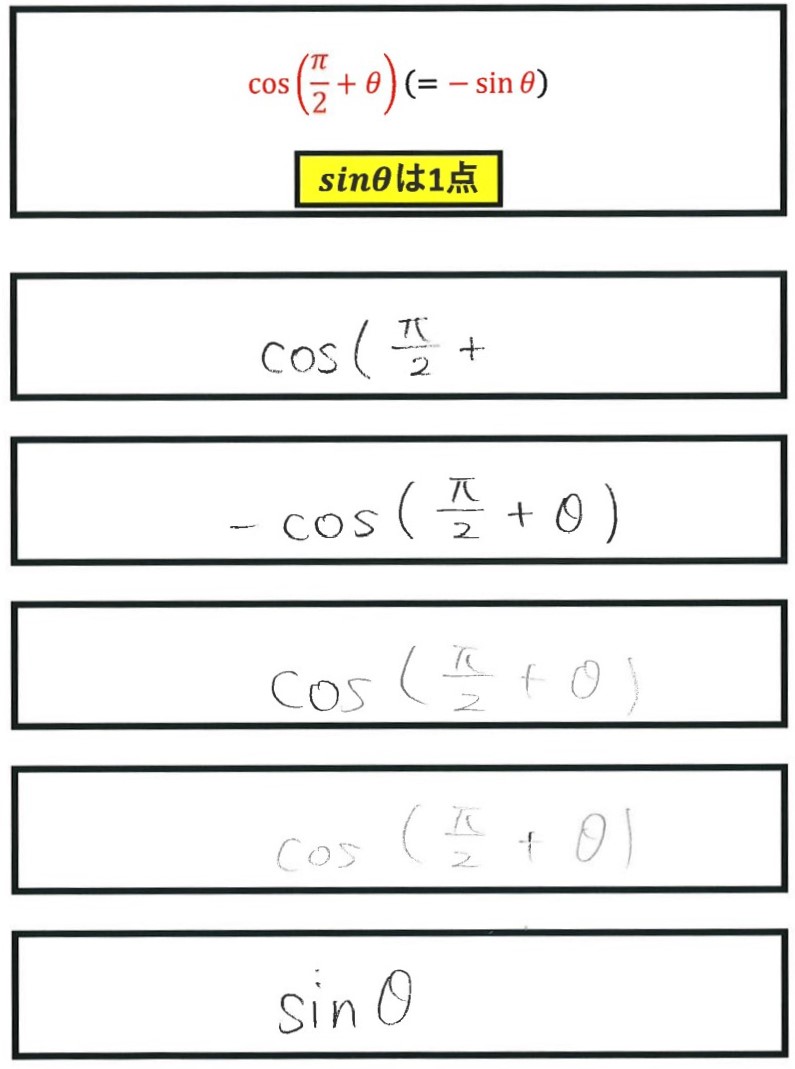 cos(π/2 + θ)(= − sin θ)
sinθは1点
cos(π/2 +
- cos(π/2 + θ)
cos(π/2 + θ)
cos(π/2 + θ)
sin θ